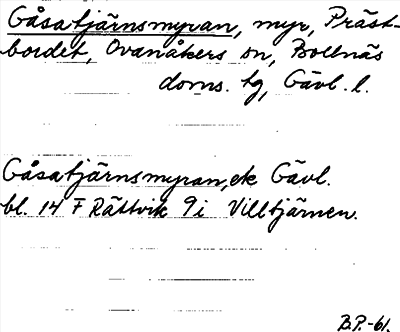 Gåsatjärnsmyran, myr, Präst-
bordet, Ovanåkers sn, Bollnäs
doms. tg, Gävl. l.
Gåsatjärnsmyran, ek Gävl.
bl. 14 F Rättvik 9i Villtjärnen.
B.P.-61.